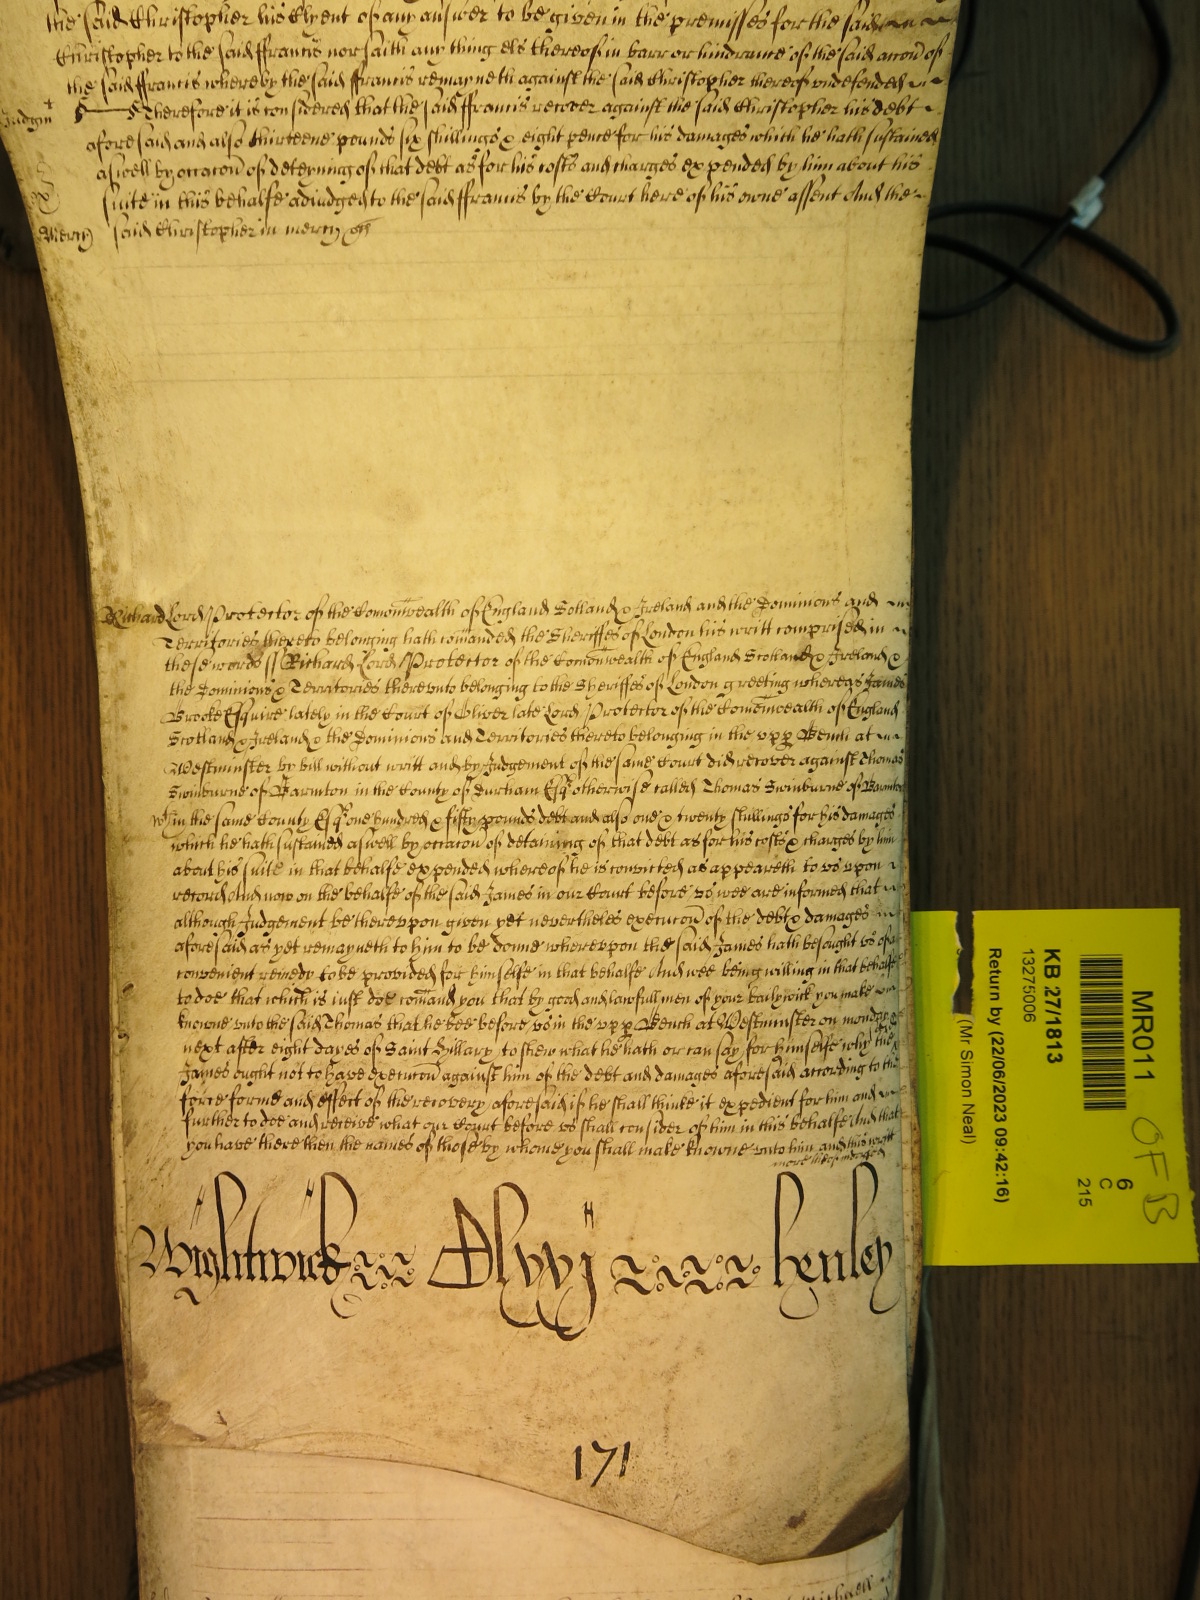 the said Christopher his Clyent of any answer to be given in the premisses for the said
Christopher to the said ffrancis nor saith any thing els thereof in barr or hindrance of the said accon of
the said ffrancis whereby the said ffrancis remayneth against the said Christopher thereof undefended
Judgmt Therefore it is considered that the said ffrancis recover against the said Christopher his debt
aforesaid and also thirteene pounds six shillings & eight pence for his damages which he hath sustained
aswell by occacon of deteyning of that debt as for his costs and charges expended by him about his
suite in this behalfe adiudged to the said ffrancis by the Court here of his owne assent And the
Mercy said Christopher in mercy &c
Richard Lord Protector of the Comonwealth of England Scotland & Ireland and the Dominions and
Territories thereto belonging hath comanded the Sheriffes of London his writt comprised in
these words ss Richard Lord Protector of the Comonwealth of England Scotland & Ireland &
the Dominions & Territories thereunto belonging to the Sheriffes of London greeting whereas James
Brooke Esquire lately in the Court of Oliver late Lord Protector of the Comonwealth of England
Scotland & Ireland & the Dominions and Territories thereto belonging in the upp Bench at
Westminster by bill without writt and by Judgement of the same Court did recover against Thomas
Swinburne of Barmton in the County of Durham Esqr otherwise called Thomas Swinburne of Barmton
in the same County Esqr one hundred & fifty pounds debt and also one & twenty shillings for his damages
which he hath sustained aswell by occacon of detaining of that debt as for his costs & charges by him
about his suite in that behalfe expended whereof he is convicted as appeareth to us upon
record And now on the behalfe of the said James in our Court before us wee are informed that
although Judgement be thereupon given yet nevertheles execucon of the debt & damages
aforesaid as yet remayneth to him to be donne whereupon the said James hath besought us of a
convenient remedy to be provided for himselfe in that behalfe And wee being willing in that behalfe
to doe that which is iust doe comand you that by good and lawfull men of your bailywick you make
knowne unto the said Thomas that he bee before us in the upp Bench at Westminster on monday
next after eight dayes of Saint Hillary to shew what he hath or can say for himselfe why the
James ought not to have execucon against him of the debt and damages aforesaid according to the
force forme and effect of the recovery aforesaid if he shall thinke it expedient for him and
further to doe and receive what our Court before us shall consider of him in this behalfe And that
you have there then the names of those by whome you shall make knowne unto him and this writt
Wightwick Alwyj henley
171
MR011
OFB
6
C
215
KB 27/1813
13275006
Return by (22/06/2023 09:42:16)
(Mr Simon Neal)